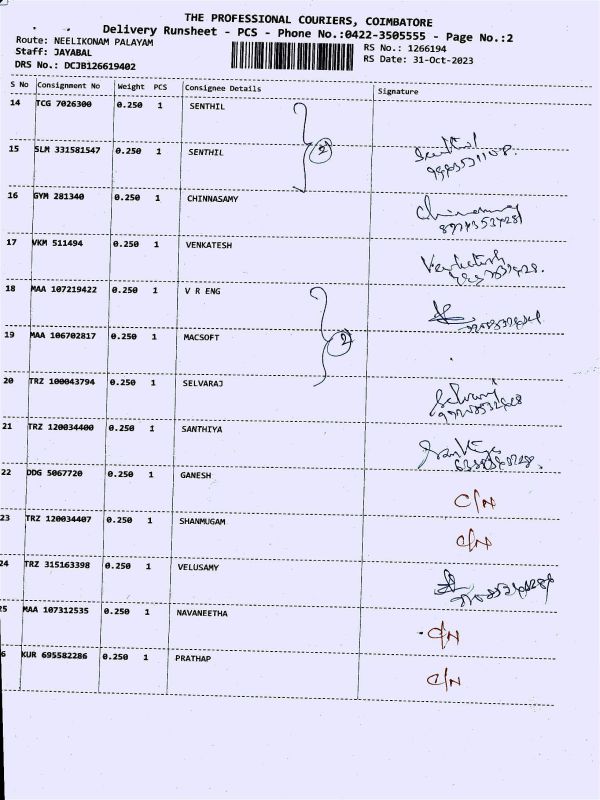 THE PROFESSIONAL COURIERS, COIMBATORE
Delivery Runsheet - PCS - Phone No.:0422-3505555 - Page No.:2
Route: NEELIKONAM PALAYAM
RS No.: 1266194
Staff: JAYABAL
RS Date: 31-Oct-2023
DRS No.: DCJB126619402
S No Consignment No Weight PCS Consignee Details Signature
14 TCG 7026300 0.250 1 SENTHIL
15 SLM 331581547 0.250 1 SENTHIL 2 Senthil
16 GYM 281340 0.250 1 CHINNASAMY Chinnasamy
17 VKM 511494 0.250 1 VENKATESH Venkatesh
18 MAA 107219422 0.250 1 V R ENG
19 MAA 106702817 0.250 1 MACSOFT 2
20 TRZ 100043794 0.250 1 SELVARAJ Selvaraj
21 TRZ 120034400 0.250 1 SANTHIYA Santhiya
22 DDG 5067720 0.250 1 GANESH C/N
23 TRZ 120034407 0.250 1 SHANMUGAM C/N
24 TRZ 315163398 0.250 1 VELUSAMY
25 MAA 107312535 0.250 1 NAVANEETHA C/N
6 KUR 695582286 0.250 1 PRATHAP C/N